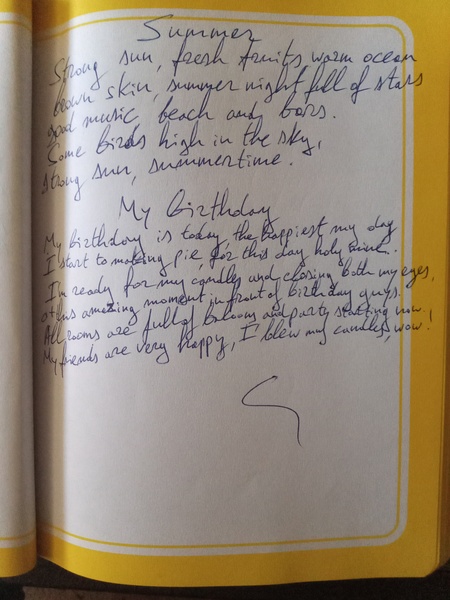 Summer
Strong sun, fresh fruits warm ocean
brown skin, summer night full of stars
good music, beach and bars.
Some birds high in the sky,
strong sun, summertime.
My Birthday
My birthday is today, the happiest my day
I start to making pie, for this day holy
I'm ready for my candles and closing both my eyes,
at this amazing moment in front of birthday guys.
All rooms are full of baloons and party starting now,
My friends are very happy, I blew my candles, wow!